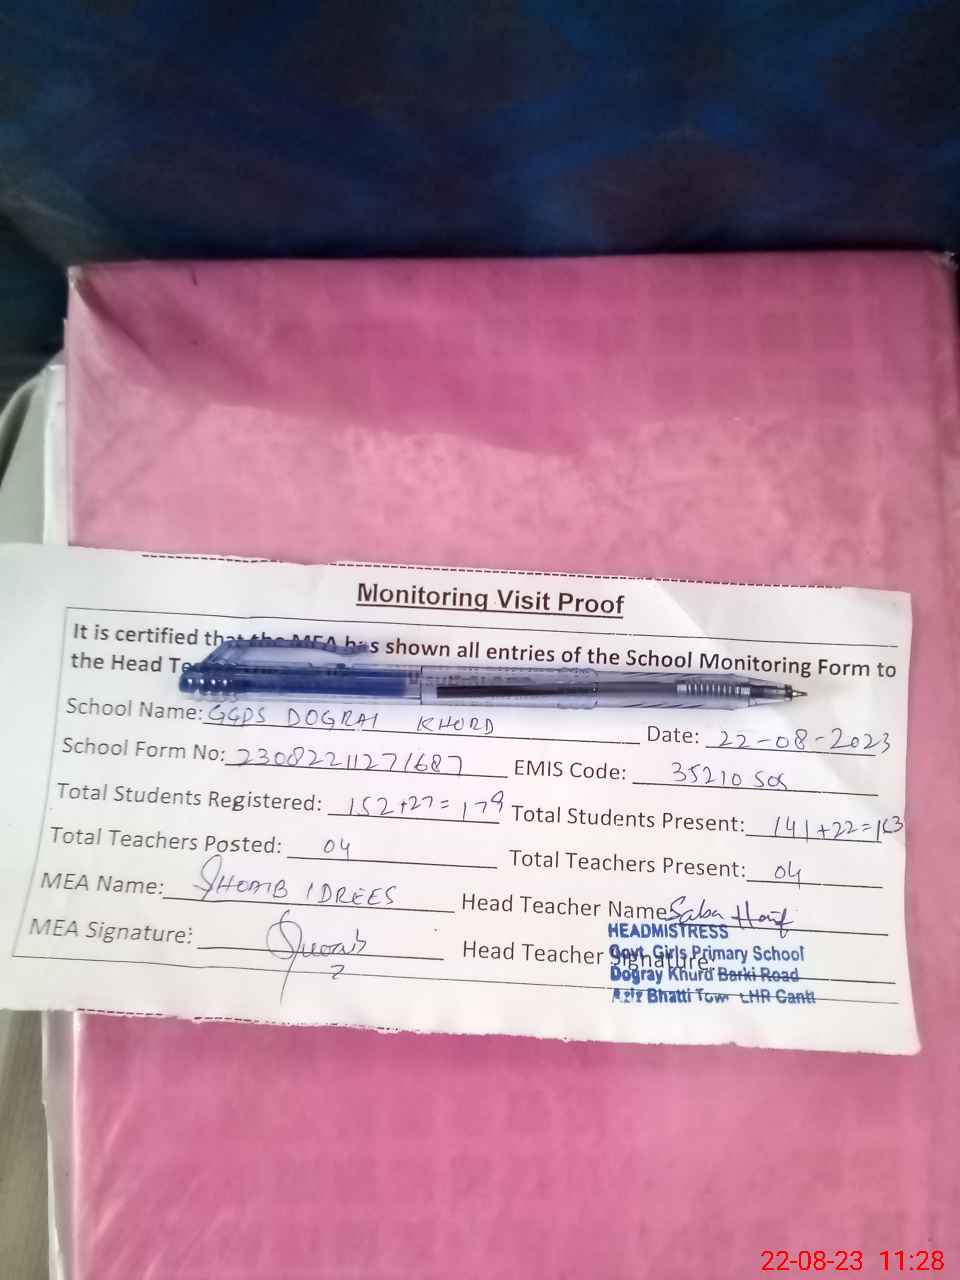 Monitoring Visit Proof
It is certified that the MEA has shown all entries of the School Monitoring Form to
the Head
School Name: GGPS DOGRAI KHURD Date: 22-08-2023
School Form No: 23082211271687 EMIS Code: 35210505
Total Students Registered: 152+27=179 Total Students Present: 141+22=163
Total Teachers Posted: 04 Total Teachers Present: 04
MEA Name: SHOAIB IDREES Head Teacher Name Saba Hanif
MEA Signature: Head Teacher Signature
HEADMISTRESS
Govt. Girls Primary School
Dogray Khurd Barki Road
Aziz Bhatti Town LHR Cantt
22-08-23 11:28